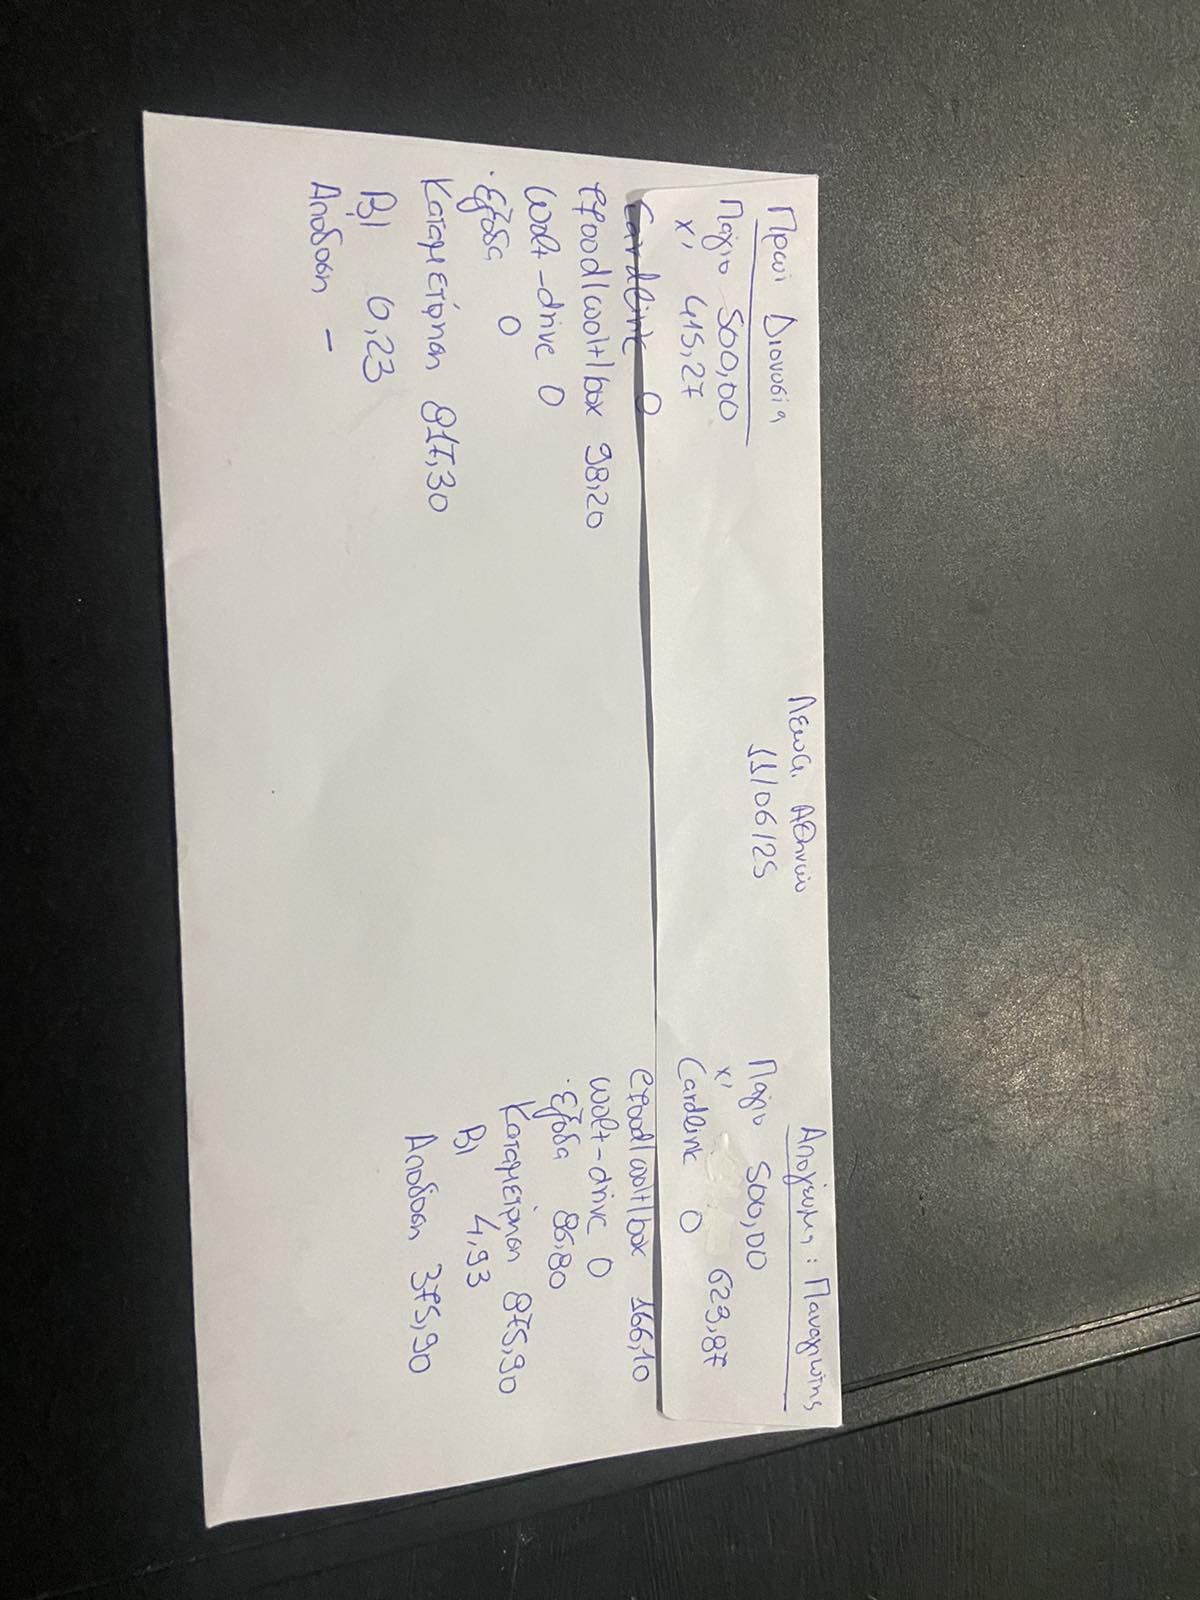 Πρωί Διονυσία
Πάγιο 500,00
χ' 415,27
Cardlink 0
efood/wolt/box 98,20
Wolt-drive 0
Έξοδα 0
Καταμέτρηση 817,30
Β1 6,23
Απόδοση -
Λεωφ. Αθηνών
11/06/25
Απόγευμα: Παναγιώτης
Πάγιο 500,00
χ' 623,87
Cardlink 0
efood/wolt/box 166,10
Wolt-drive 0
Έξοδα 86,80
Καταμέτρηση 875,90
Β1 4,93
Απόδοση 375,90